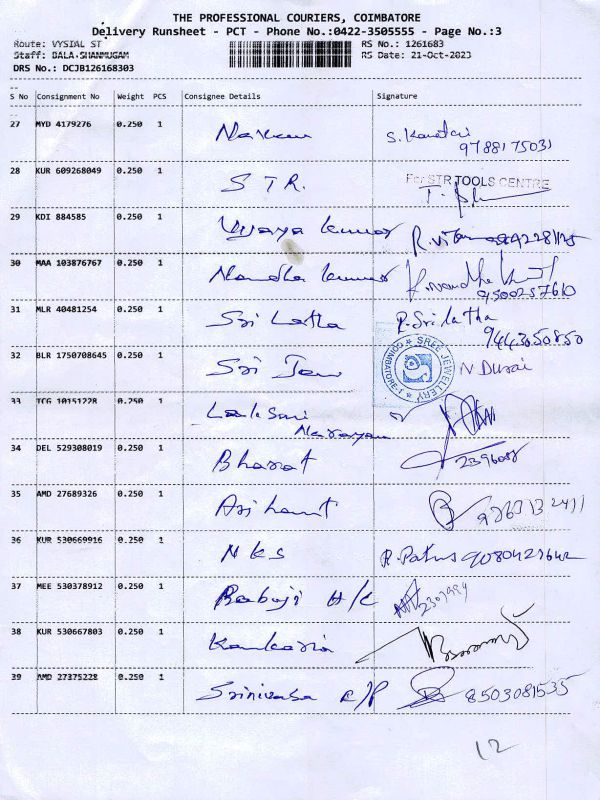 THE PROFESSIONAL COURIERS, COIMBATORE
Delivery Runsheet - PCT - Phone No.:0422-3505555 - Page No.:3
Route: VYSIAL ST RS No.: 1261683
Staff: BALA.SHANMUGAM RS Date: 21-Oct-2023
DRS No.: DCJB126168303
S No Consignment No Weight PCS Consignee Details Signature
27 MYD 4179276 0.250 1 S.
9788175031
28 KUR 609268049 0.250 1 STR. For STR TOOLS CENTRE
29 KDI 884585 0.250 1 Vijaya kumar
30 MAA 103876767 0.250 1 Nandha kumar
9500257610
31 MLR 40481254 0.250 1 Sri Latha R. Srilatha
9443050850
32 BLR 1750708645 0.250 1 Sri SREE JEWELLERY COIMBATORE-1 N Durai
33 TCG 10151228 0.250 1 Lakshmi
Narayan
34 DEL 529308019 0.250 1 Bharat
35 AMD 27689326 0.250 1 Arihant
36 KUR 530669916 0.250 1 NKS R.
37 MEE 530378912 0.250 1 Babuji H/C
38 KUR 530667803 0.250 1 Kankaria
39 AMD 27375228 0.250 1 Srinivasa 8503081535
12